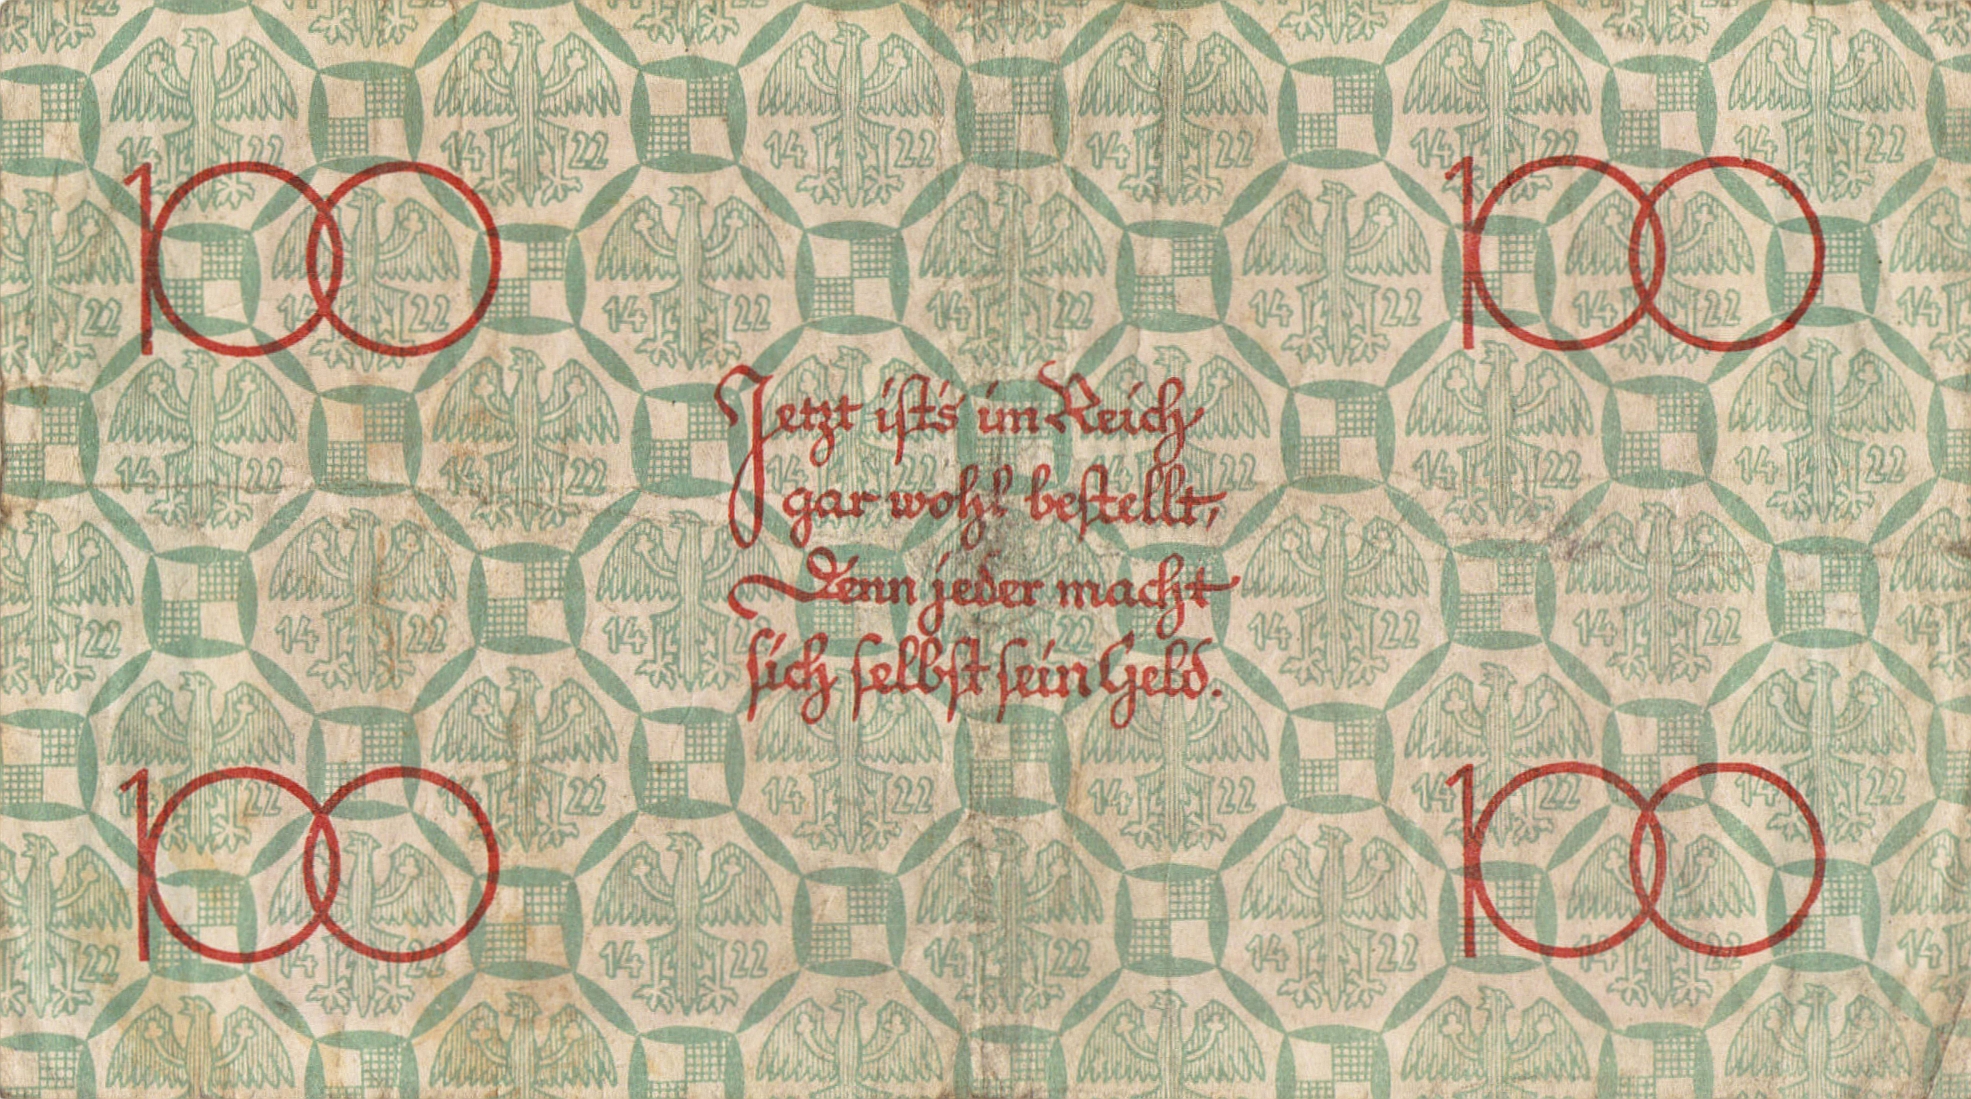 100 100
Jetzt ist's im Reich
gar wohl bestellt,
Denn jeder macht
sich selbst sein Geld.
100 100
14 22